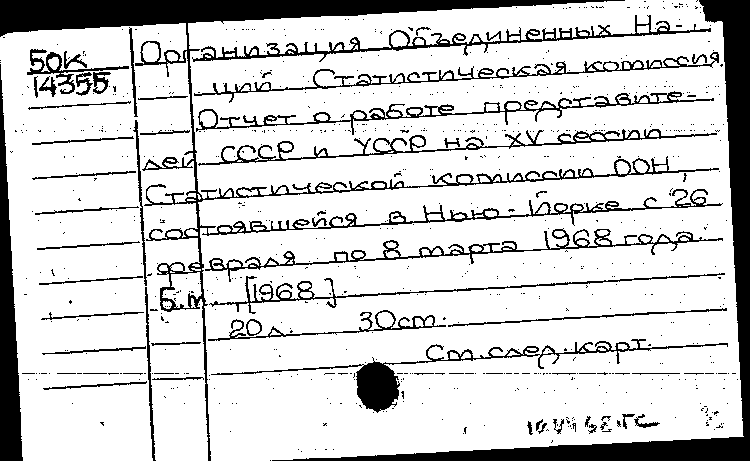 50К
14355.
Организация Объединенных На-
ций. Статистическая комиссия.
Отчет о работе представите-
лей СССР и УССР на XV сессии
Статистической комиссии ООН,
состоявшейся в Нью-Йорке с 26
февраля по 8 марта 1968 года.
Б.м., [1968].
20л. 30см.
См. след. карт.